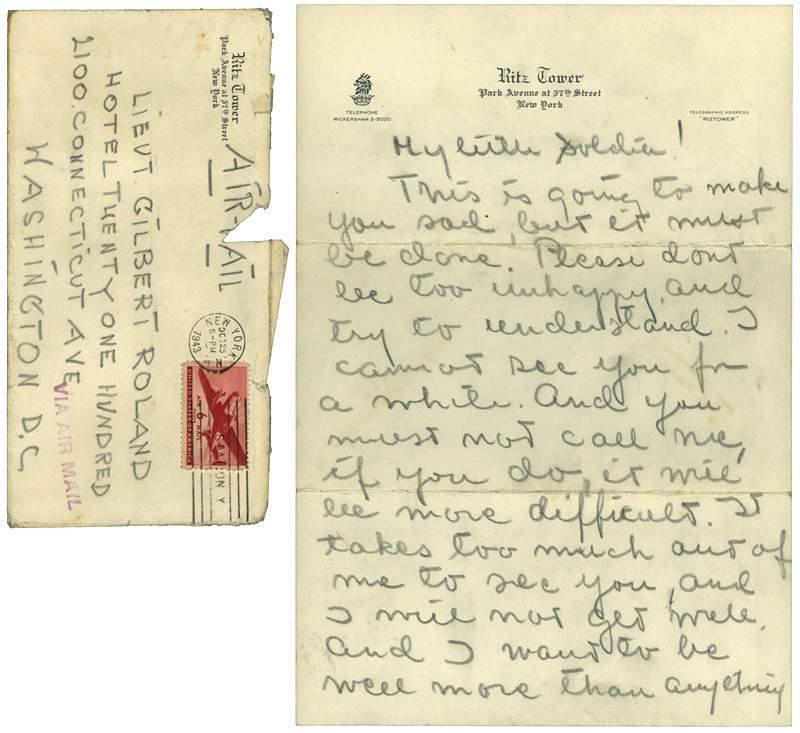 Ritz Tower
Park Avenue at 57th Street
New York
AIR-MAIL
LIEUT. GILBERT ROLAND
HOTEL TWENTY ONE HUNDRED
2100. CONNECTICUT AVE
WASHINGTON D.C.
VIA AIR MAIL
NEW YORK, N.Y.
OCT 23
6-PM
1943
UNITED STATES OF AMERICA
AIR 6¢ MAIL
Ritz Tower
Park Avenue at 57th Street
New York
TELEPHONE
WICKERSHAM 2-5000
TELEGRAPHIC ADDRESS
"RIZTOWER"
My little Soldier!
This is going to make
you sad, but it must
be done. Please dont
be too unhappy, and
try to understand. I
cannot see you for
a while. And you
must not call me,
if you do, it will
be more difficult. It
takes too much out of
me to see you, and
I will not get well.
And I want to be
well more than anything